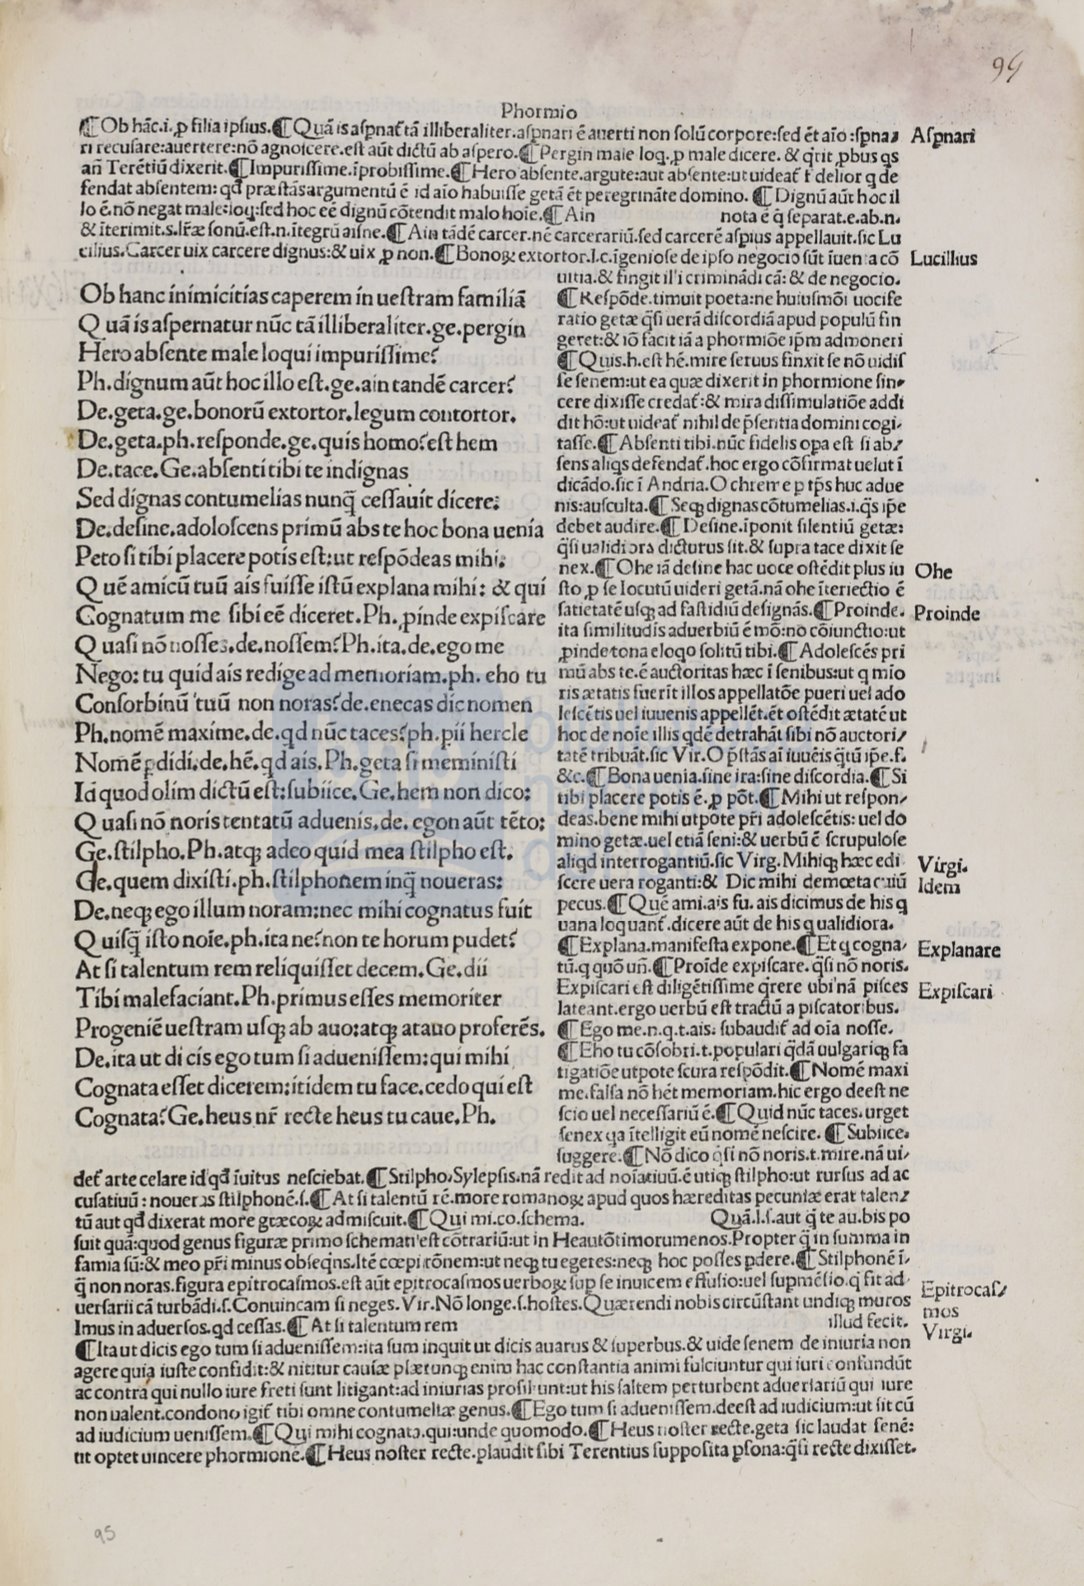 94
Phormio
¶Ob hāc.i.ꝓ filia ipſius.¶Quā is aſpnaꝉ tā illiberaliter.aſpnari ē auerti non ſolū corpore:ſed ēt aīo:ſpna⸗
Aſpnari
ri recuſare:auertere:nō agnoſcere.eſt aūt dictū ab aſpero.¶Pergin male loq.ꝓ male dicere. & q̇rit ꝓbus qs
an Terētiū dixerit.¶Impuriſſime.īprobiſſime.¶Hero abſente.argute:aut abſente:ut uideaꝉ
fendat abſentem: qđ præſtās argumentū ē id aīo habuiſſe getā ēt peregrināte domino. ¶Dignū aūt hoc il
lo ē.nō negat male:loq:ſed hoc eē dignū cōtendit malo hoīe.¶Ain nota ē q̇ ſeparat.e.ab.n.
& īterimit.s.lr̄æ ſonū.eſt.n.ītegrū aiſne.¶Ain tādē carcer.nē carcerariū.ſed carcerē aſpius appellauit.ſic Lu
cilius.Carcer uix carcere dignus:& uix ꝓ non.¶Bonoꝝ extortor.l.c.īgenioſe de ipſo negocio ſūt īuenta cō
Lucillius
uitia.& fingit il'i criminādi cā: & de negocio.
¶Reſpōde.timuit poeta:ne huiuſmōi uocife
ratio getæ q̄ſi uerā diſcordiā apud populū fin
geret:& iō facit iā a phormiōe ip̄m admoneri
¶Quis.h.eſt hē.mire ſeruus finxit ſe nō uidiſ
ſe ſenem:ut ea quæ dixerit in phormione ſin⸗
cere dixiſſe credaꝉ:& mira diſſimulatiōe addi
dit hō:ut uideaꝉ nihil de p̄ſentia domini cogi⸗
taſſe.¶Abſenti tibi.nūc fidelis opa eſt ſi ab⸗
ſens aliqs defendaꝉ.hoc ergo cōfirmat uelut ī
dicādo.ſic ī Andria.O chreme p tp̄s huc adue
nis:auſculta.¶Seqꝫ dignas cōtumelias.i.q̄s ip̄e
debet audire.¶Deſine.īponit ſilentiū getæ:
q̄ſi ualidiora dicturus ſit.& ſupra tace dixit ſe
nex.¶Ohe iā deſine hac uoce oſtēdit plus iu
Ohe
ſto.ꝓ ſe locutū uideri getā.nā ohe īteriectio ē
ſatietatē uſqꝫ ad faſtidiū deſignās.¶Proinde.
Proinde
ita ſimilitudīs aduerbiū ē mō:nō cōiunctio:ut
ꝓinde tona eloqo ſolitū tibi.¶Adoleſcēs pri
mū abs te.ē auctoritas hæc ī ſenibus:ut q mio
ris ætatis fuerīt illos appellatōe pueri uel ado
leſcētis uel iuuenis appellēt.ēt oſtēdit ætatē ut
hoc de noīe illis qdē detrahāt ſibi nō auctori⸗
tatē tribuāt.ſic Vir.O p̄ſtās aī iuuēis q̄tū ip̄e.f.
&c.¶Bona uenia.ſine ira:ſine diſcordia.¶Si
tibi placere potis ē.ꝓ pōt.¶Mihi ut reſpon⸗
deas.bene mihi utpote pr̄i adoleſcētis: uel do
mino getæ.uel etiā ſeni:& uerbū ē ſcrupuloſe
aliqd interrogantiū.ſic Virg.Mihiqꝫ hæc edi
Virgi.
ſcere uera roganti:& Dic mihi demœta cuiū
Idem
pecus.¶Quē ami.ais fu. ais dicimus de his q
uana loquanꝉ.dicere aūt de his q ualidiora.
¶Explana.manifeſta expone.¶Et q cogna⸗
Explanare
tū.q quō un̄.¶Proīde expiſcare.q̄ſi nō noris.
Expiſcari eſt diligētiſſime q̇rere ubi nā piſces
Expiſcari
lateant.ergo uerbū eſt tractū a piſcatoribus.
¶Ego me.n.q.t.ais. ſubaudiꝉ ad oīa noſſe.
¶Eho tu cōſobri.t.populari q̄dā uulgariqꝫ fa
tigatiōe utpote ſcura reſpōdit.¶Nomē maxi
me.falſa nō hēt memoriam.hic ergo deeſt ne
ſcio uel neceſſariū ē.¶Quid nūc taces.urget
ſenex qa ītelligit eū nomē neſcire.¶Subiice.
ſuggere.¶Nō dico q̄ſi nō noris.t.mire.nā ui⸗
Ob hanc inimicitias caperem in ueſtram familiā
Quā is aſpernatur nūc tā illiberaliter.ge.pergin
Hero abſente male loqui impuriſſime?
Ph.dignum aūt hoc illo eſt.ge.ain tandē carcer?
De.geta.ge.bonorū extortor.legum contortor.
De.geta.ph.reſponde.ge.quis homo?eſt hem
De.tace.Ge.abſenti tibi te indignas
Sed dignas contumelias nunq̄ ceſſauit dicere:
De.deſine.adoloſcens primū abs te hoc bona uenia
Peto ſi tibi placere potis eſt:ut reſpōdeas mihi:
Quē amicū tuū ais fuiſſe iſtū explana mihi: & qui
Cognatum me ſibi eē diceret.Ph.ꝓinde expiſcare
Quaſi nō noſſes.de.noſſem?Ph.ita.de.ego me
Nego: tu quid ais redige ad memoriam.ph. eho tu
Conſorbinū tuū non noras?de.enecas dic nomen
Ph.nomē maxime.de.qd nūc taces?ph.pii hercle
Nomē ꝑdidi.de.hē.qd ais.Ph.geta ſi meminiſti
Id quod olim dictū eſt:ſubiice.Ge.hem non dico:
Quaſi nō noris tentatū aduenis.de. egon aūt tēto:
Ge.ſtilpho.Ph.atqꝫ adeo quid mea ſtilpho eſt.
De.quem dixiſti.ph.ſtilphonem inq̄ noueras:
De.neqꝫ ego illum noram:nec mihi cognatus fuit
Quiſq̄ iſto noīe.ph.ita ne?non te horum pudet?
At ſi talentum rem reliquiſſet decem.Ge.dii
Tibi malefaciant.Ph.primus eſſes memoriter
Progeniē ueſtram uſqꝫ ab auo:atqꝫ atauo proferēs.
De.ita ut di cis ego tum ſi adueniſſem:qui mihi
Cognata eſſet dicerem:itidem tu face.cedo qui eſt
Cognata?Ge.heus nr̄ recte heus tu caue.Ph.
deꝉ arte celare id qđ īuitus neſciebat.¶Stilpho.Sylepſis.nā redit ad noīatiuū.ē utiqꝫ ſtilpho:ut rurſus ad ac
cuſatiuū: noueras ſtilphonē.ſ.¶At ſi talentū rē.more romanoꝝ apud quos hæreditas pecuniæ erat talen⸗
tū aut qđ dixerat more græcoꝝ admiſcuit.¶Qui mi.co.ſchema. Quā.l.ſ.aut q̇ te au.bis po
ſuit quā:quod genus figuræ primo ſchemati eſt cōtrariū:ut in Heautōtimorumenos.Propter q̄ in ſumma in
famia ſū:& meo pr̄i minus obſeqns.Itē cœpi rōnem:ut neqꝫ tu egeres:neqꝫ hoc poſſes ꝑdere.¶Stilphonē ī⸗
q̄ non noras.figura epitrocaſmos.eſt aūt epitrocaſmos uerboꝝ ſup ſe inuicem effuſio:uel ſupmēſio.q̇ fit ad
Epitrocaſ⸗
mos
uerſarii cā turbādi.ſ.Conuincam ſi neges.Vir.Nō longe.ſ.hoſtes.Quærendi nobis circūſtant undiqꝫ muros
Virgi.
Imus in aduerſos.qd ceſſas.¶At ſi talentum rem illud fecit.
¶Ita ut dicis ego tum ſi adueniſſem:ita ſum inquit ut dicis auarus & ſuperbus.& uide ſenem de iniuria non
agere quia iuſte confidit:& nititur cauſæ plærunqꝫ enim hac conſtantia animi fulciuntur qui iuri confundūt
ac contra qui nullo iure freti ſunt litigant:ad iniurias proſiliunt:ut his ſaltem perturbent aduerſariū qui iure
non ualent.condono igiꝉ tibi omne contumeliæ genus.¶Ego tum ſi adueniſſem.deeſt ad iudicium:ut ſit cū
ad iudicium ueniſſem.¶Qui mihi cognata.qui:unde quomodo.¶Heus noſter recte.geta ſic laudat ſenē:
ut optet uincere phormionē.¶Heus noſter recte.plaudit ſibi Terentius ſuppoſita ꝑſona:q̄ſi recte dixiſſet.
95